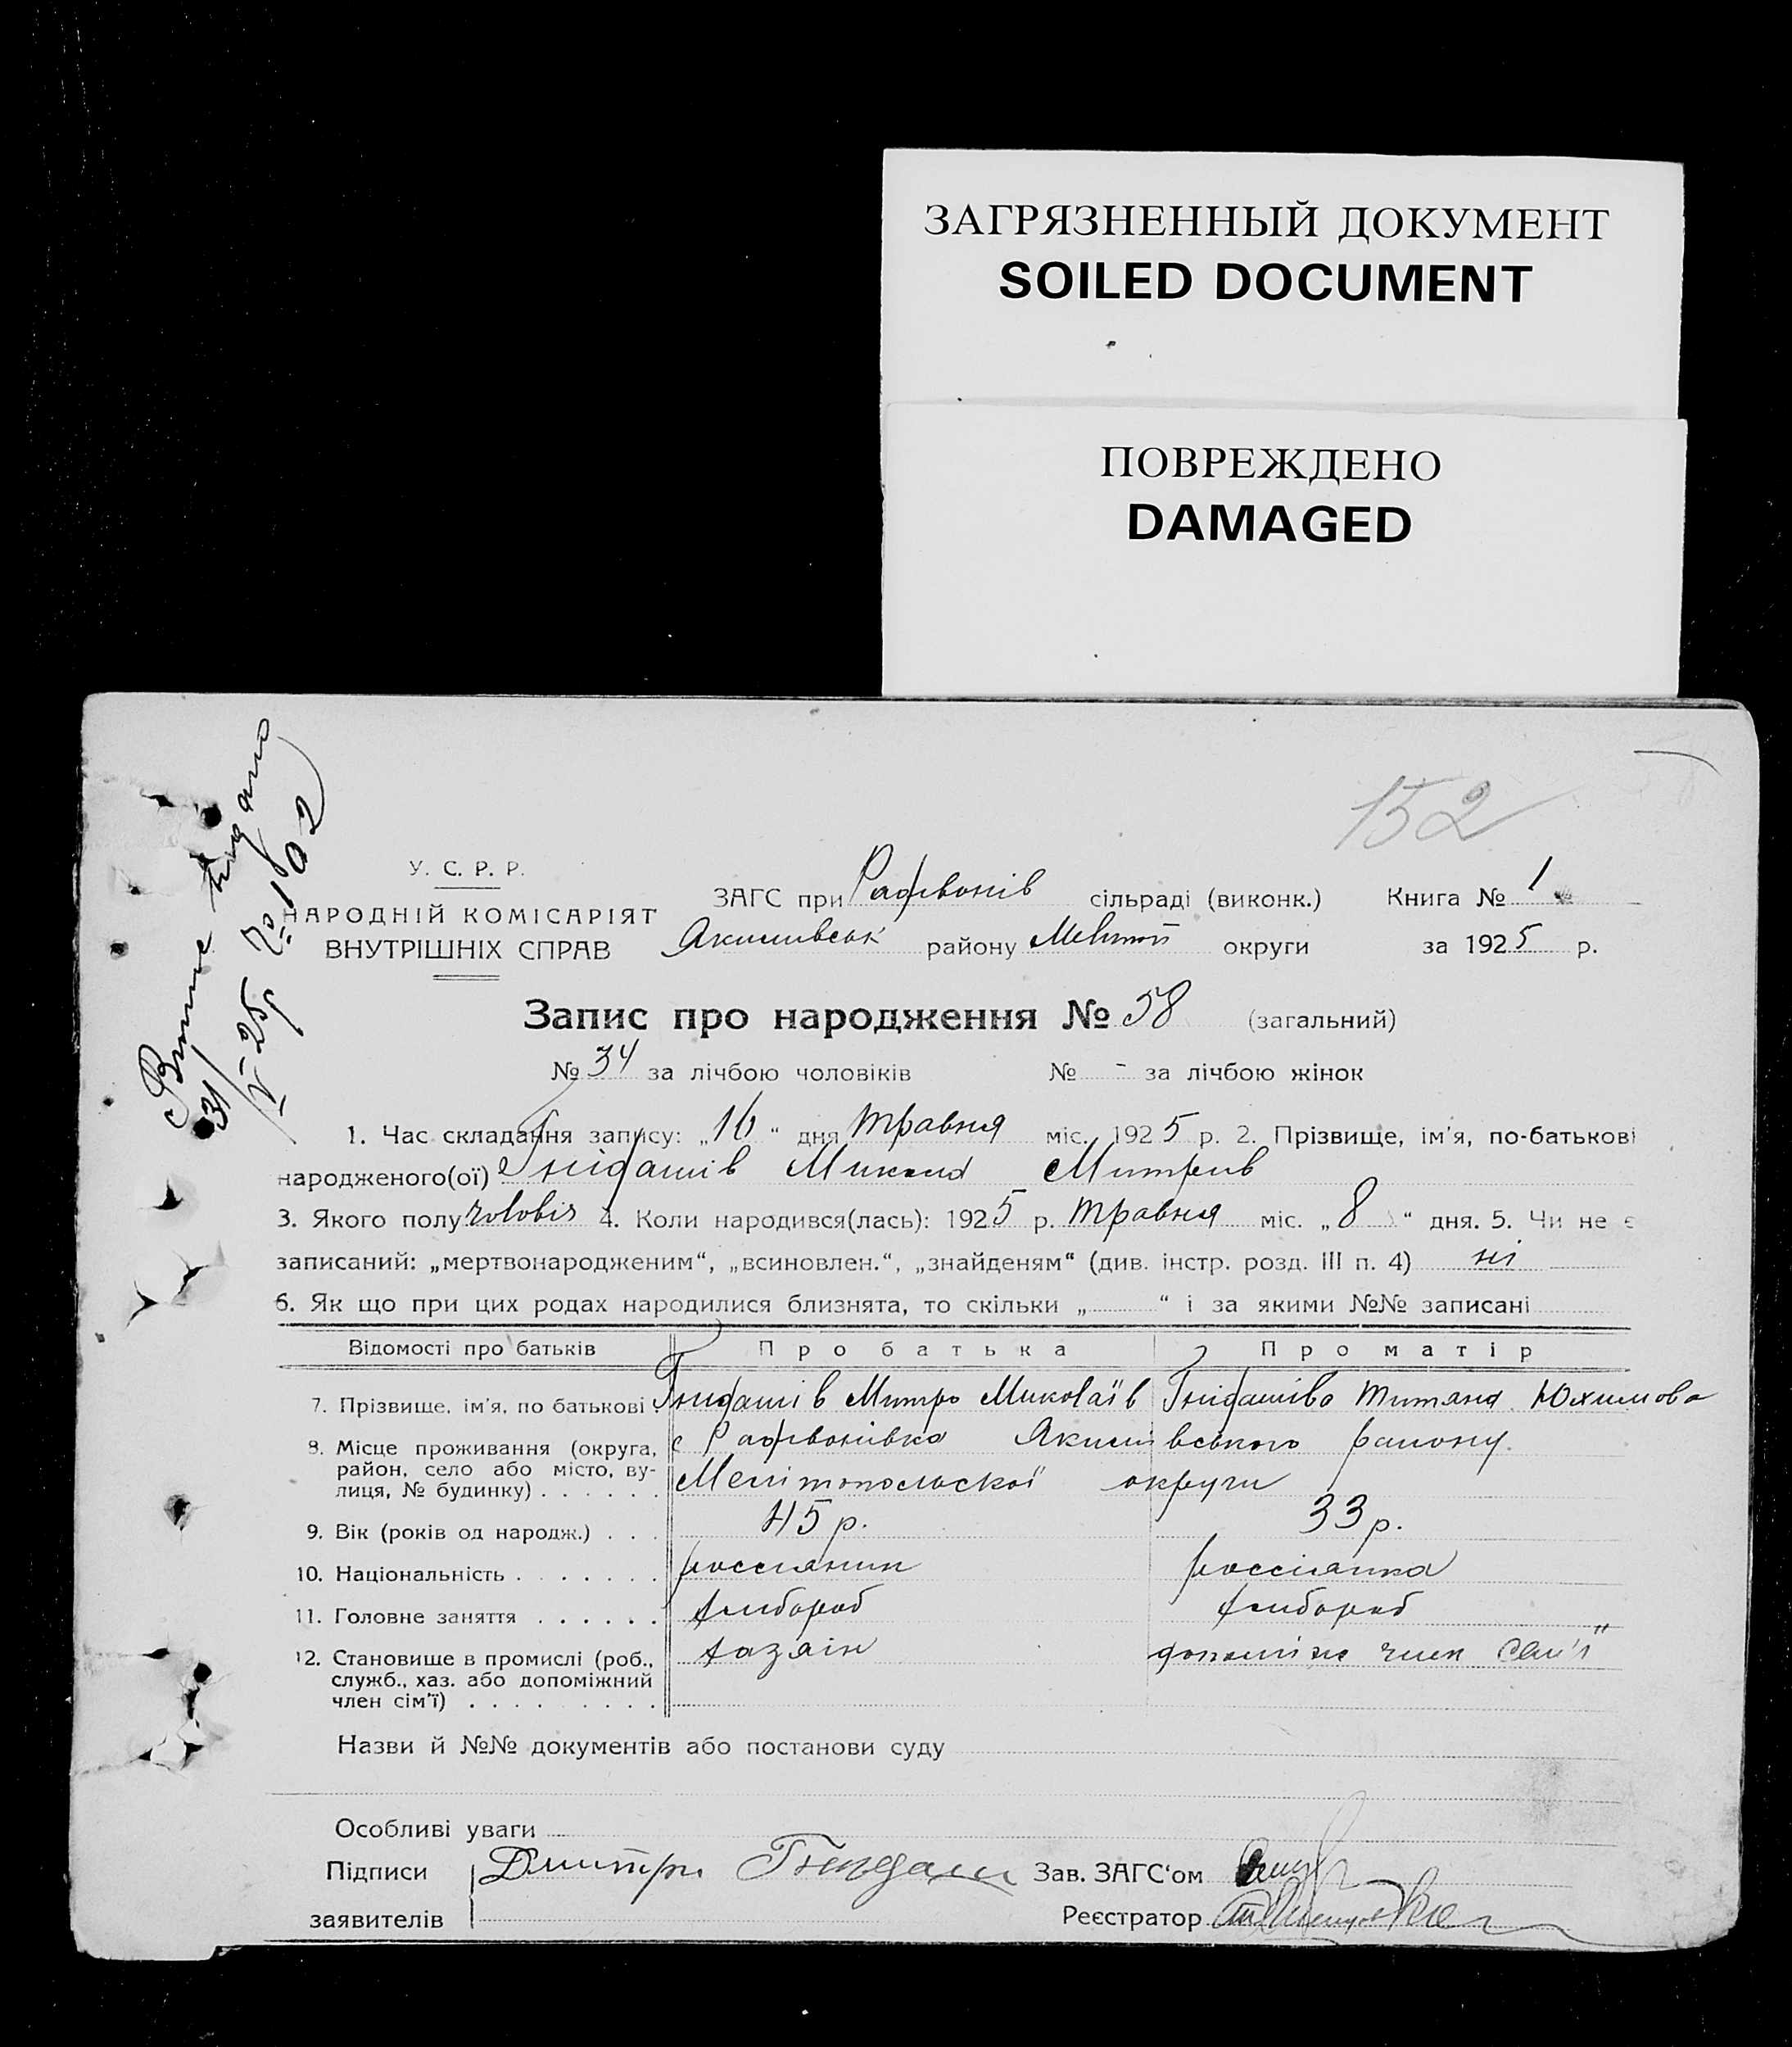 ЗАГРЯЗНЕННЫЙ ДОКУМЕНТ
SOILED DOCUMENT
ПОВРЕЖДЕНО
DAMAGED
152
Випис видано
31/V-25р № 102
У. С. Р. Р.
НАРОДНІЙ КОМІСАРІЯТ
ВНУТРІШНІХ СПРАВ
ЗАГС при сільраді (виконк.) Книга № 1
Якимівськ району Меліт округи за 1925 р.
Запис про народження № 58 (загальний)
№ 34 за лічбою чоловіків № - за лічбою жінок
1. Час складання запису: „16“ дня травня міс. 1925 р. 2. Прізвище, ім'я, по-батькові
народженого(ої) Гнідашів Микола Митрів
3. Якого полу чоловіч 4. Коли народився(лась): 1925 р. травня міс. „8“ дня. 5. Чи не є
записаний: „мертвонародженим“, „всиновлен.“, „знайденям“ (див. інстр. розд. III п. 4) ні
6. Як що при цих родах народилися близнята, то скільки „ “ і за якими №№ записані
Відомості про батьків Про батька Про матір
7. Прізвище, ім'я, по батькові Гнідашів Митро Миколаїв Гнідашіва Титяна Юхимова
8. Місце проживання (округа, район, село або місто, вулиця, № будинку) с Якимівського району
Мелітопольскої округи
9. Вік (років од народж.) 45 р. 33 р.
10. Національність россіянин россіянка
11. Головне заняття хлибороб хлибороб
12. Становище в промислі (роб., служб., хаз. або допоміжний член сім'ї) хазяін допоміжн член сем'ї
Назви й №№ документів або постанови суду
Особливі уваги
Підписи Дмитри Гнедаш Зав. ЗАГС'ом
заявителів Реєстратор